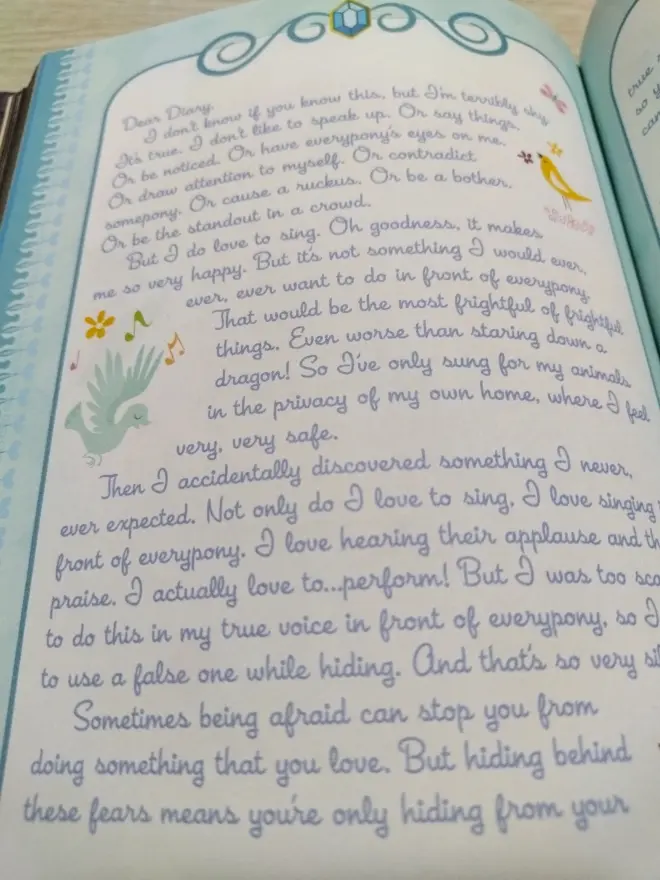 Dear Diary,
I don't know if you know this, but I'm terribly shy
It's true. I don't like to speak up. Or say things.
Or be noticed. Or have everypony's eyes on me.
Or draw attention to myself. Or contradict
somepony. Or cause a ruckus. Or be a bother.
Or be the standout in a crowd.
But I do love to sing. Oh goodness, it makes
me so very happy. But it's not something I would ever,
ever, ever want to do in front of everypony.
That would be the most frightful of frightful
things. Even worse than staring down a
dragon! So I've only sung for my animals
in the privacy of my own home, where I feel
very, very safe.
Then I accidentally discovered something I never,
ever expected. Not only do I love to sing, I love singing
front of everypony. I love hearing their applause and
praise. I actually love to...perform! But I was too
to do this in my true voice in front of everypony, so I
to use a false one while hiding. And that's so very
Sometimes being afraid can stop you from
doing something that you love. But hiding behind
these fears means you're only hiding from your
true
so y
can